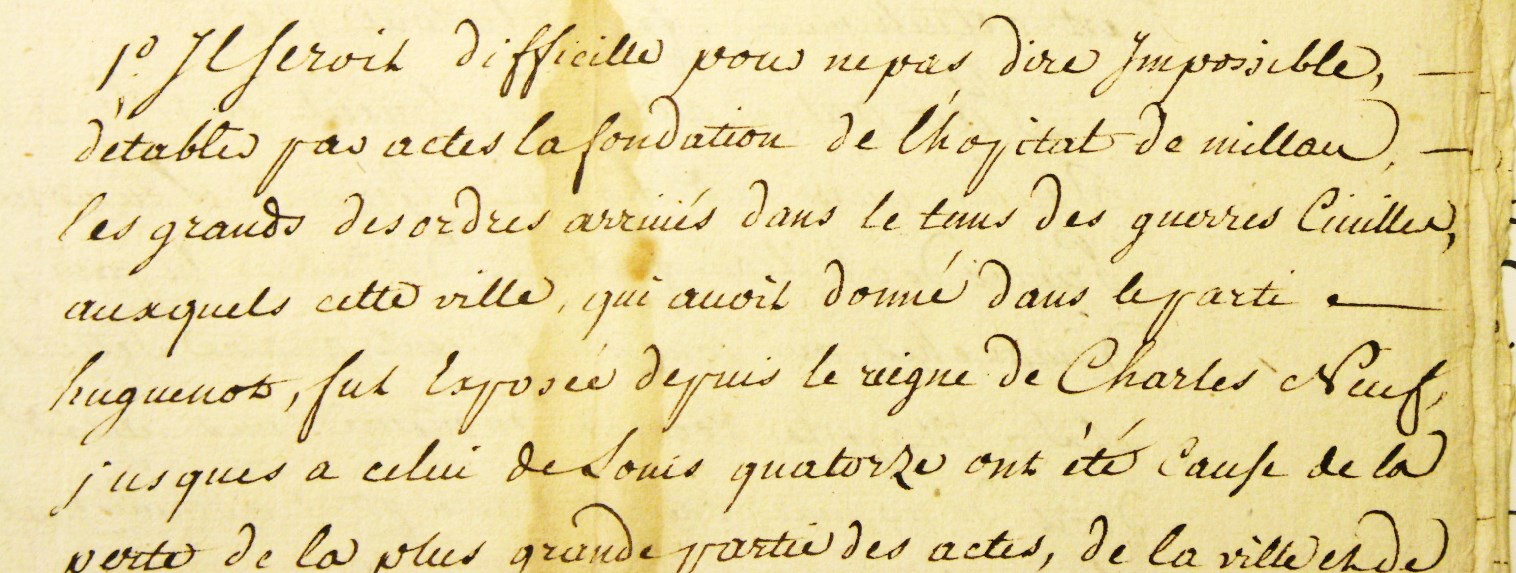 1º. Il seroit difficille pour ne pas dire Impossible, —
d'etablir par actes la fondation de l'hopital de millau, —
les grands desordres arriués dans le tems des guerres Ciuilles,
auxquels cette ville, qui auoit donné dans le parti —
huguenot, fut Exposée depuis le reigne de Charles Neuf,
jusques a celui de Louis quatorze ont été Cause de la
perte de la plus grande partie des actes, de la ville et de